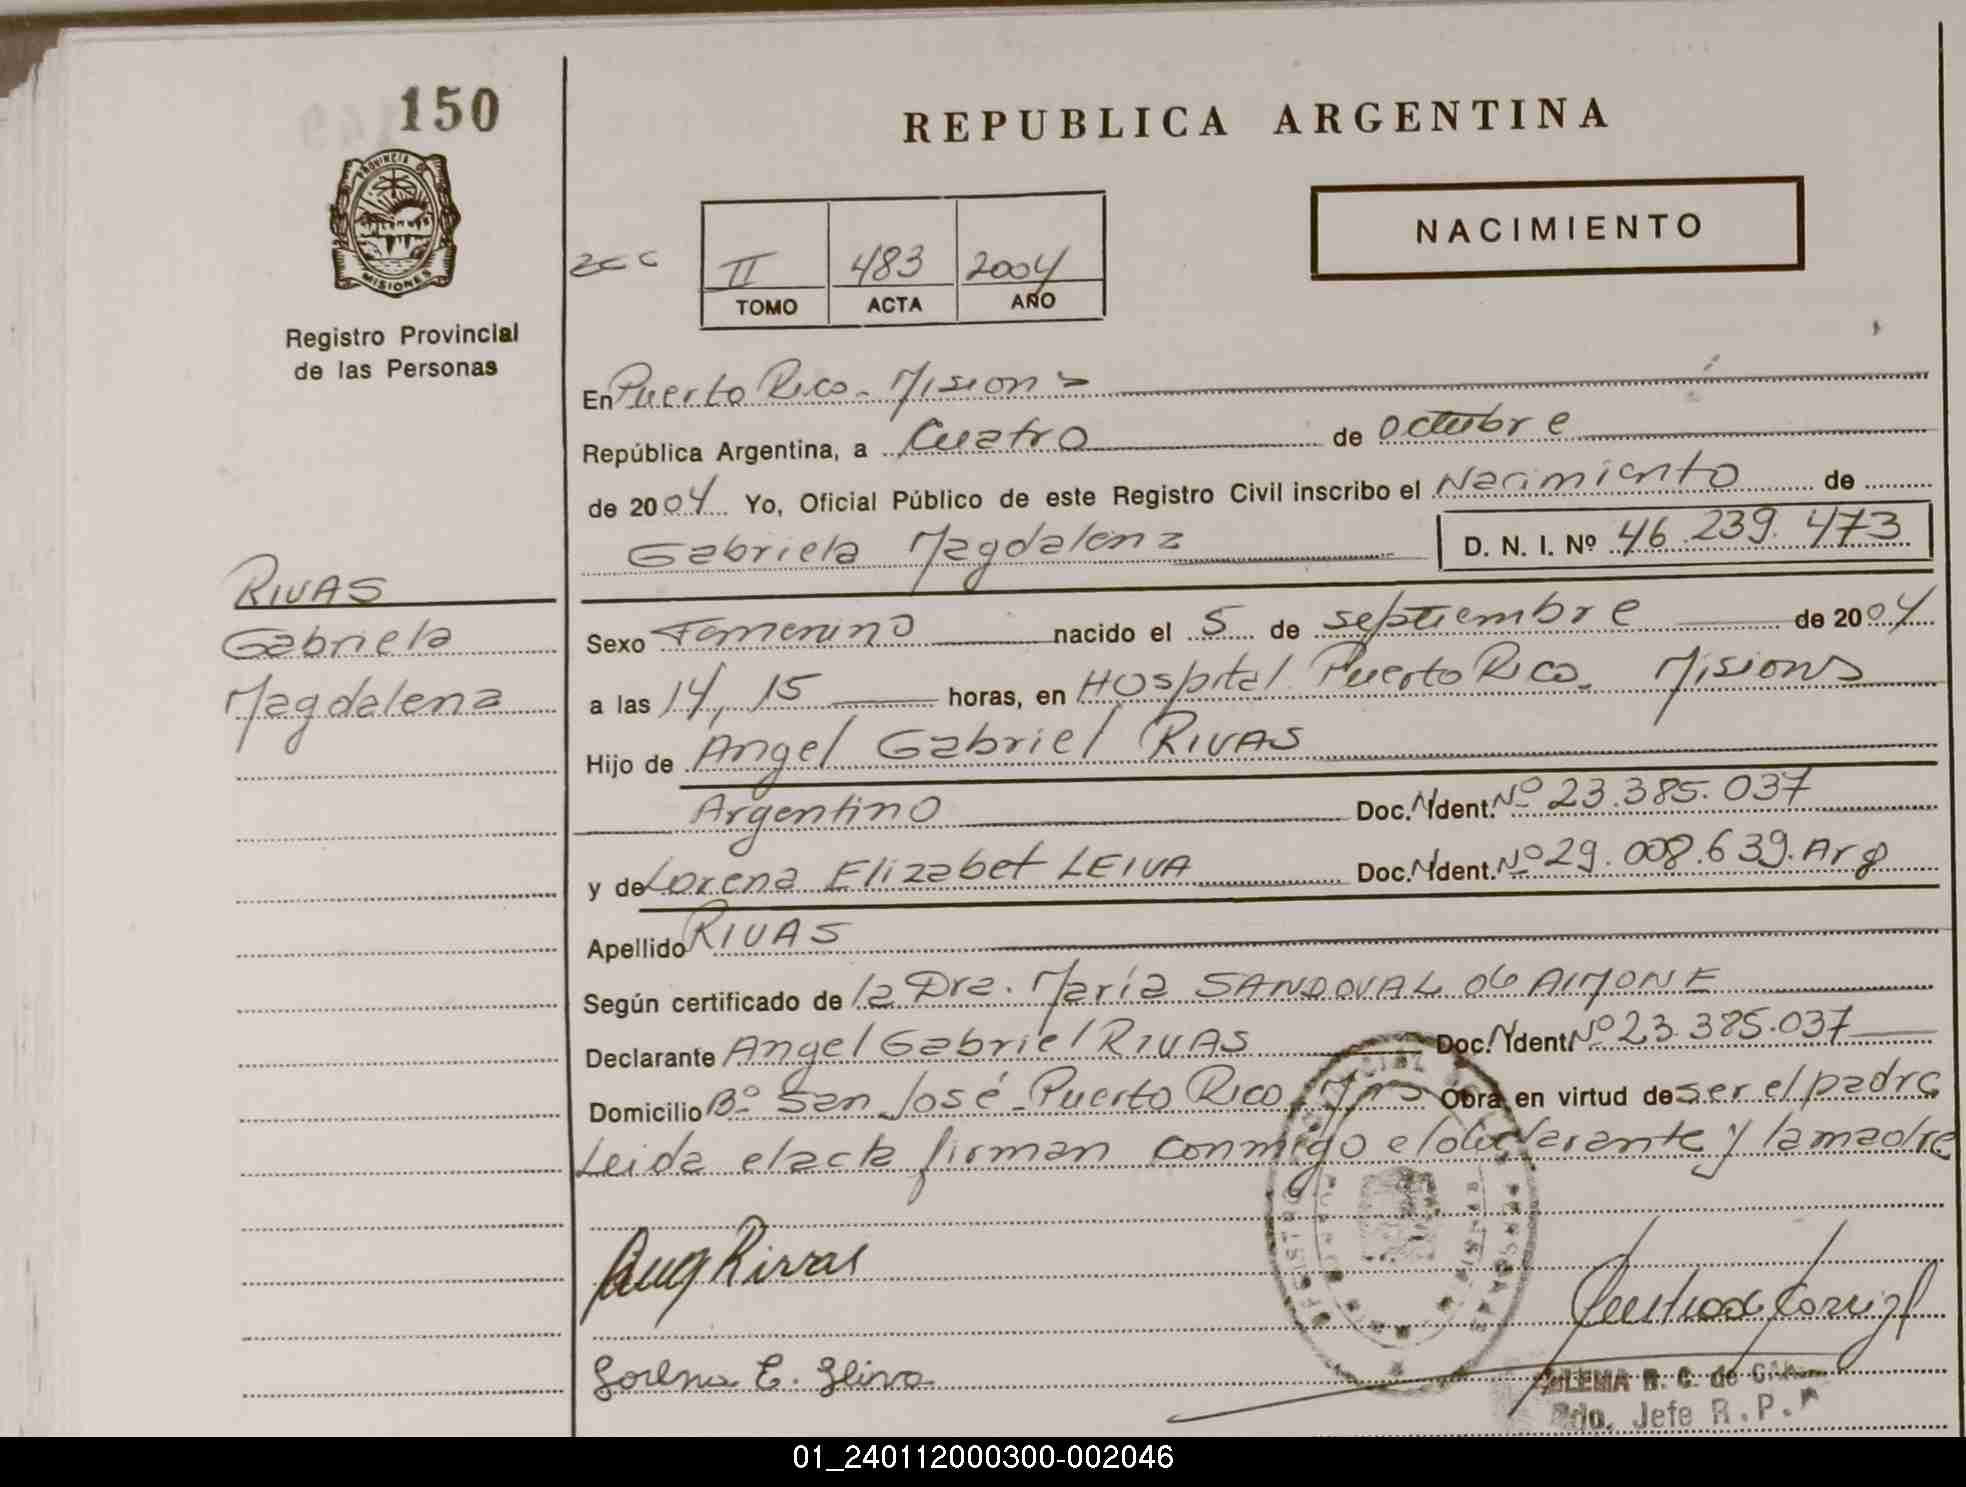 150
PROVINCIA DE
MISIONES
Registro Provincial
de las Personas
REPUBLICA ARGENTINA
NACIMIENTO
II 483 2004
TOMO ACTA AÑO
En Puerto Rico - Misiones
República Argentina, a Cuatro de octubre
de 2004 Yo, Oficial Público de este Registro Civil inscribo el Nacimiento de
Gabriela Magdalena D. N. I. Nº 46.239.473
RIVAS
Gabriela
Magdalena
Sexo Femenino nacido el 5 de septiembre de 2004
a las 14,15 horas, en Hospital Puerto Rico. Misiones
Hijo de Angel Gabriel RIVAS
Argentino Doc. N Ident. Nº 23.385.037
y de Lorena Elizabet LEIVA Doc. N Ident. Nº 29.008.639. Arg
Apellido RIVAS
Según certificado de la Dra. María SANDOVAL de AIMONE
Declarante Angel Gabriel RIVAS Doc. N Ident. Nº 23.385.037
Domicilio Bº San José - Puerto Rico, Mnes Obra en virtud de ser el padre
Leida el acta firman conmigo el declarante y la madre
Ang Rivas
Lorena E. Leiva
R. C. de
Jefe R. P.
01_240112000300-002046